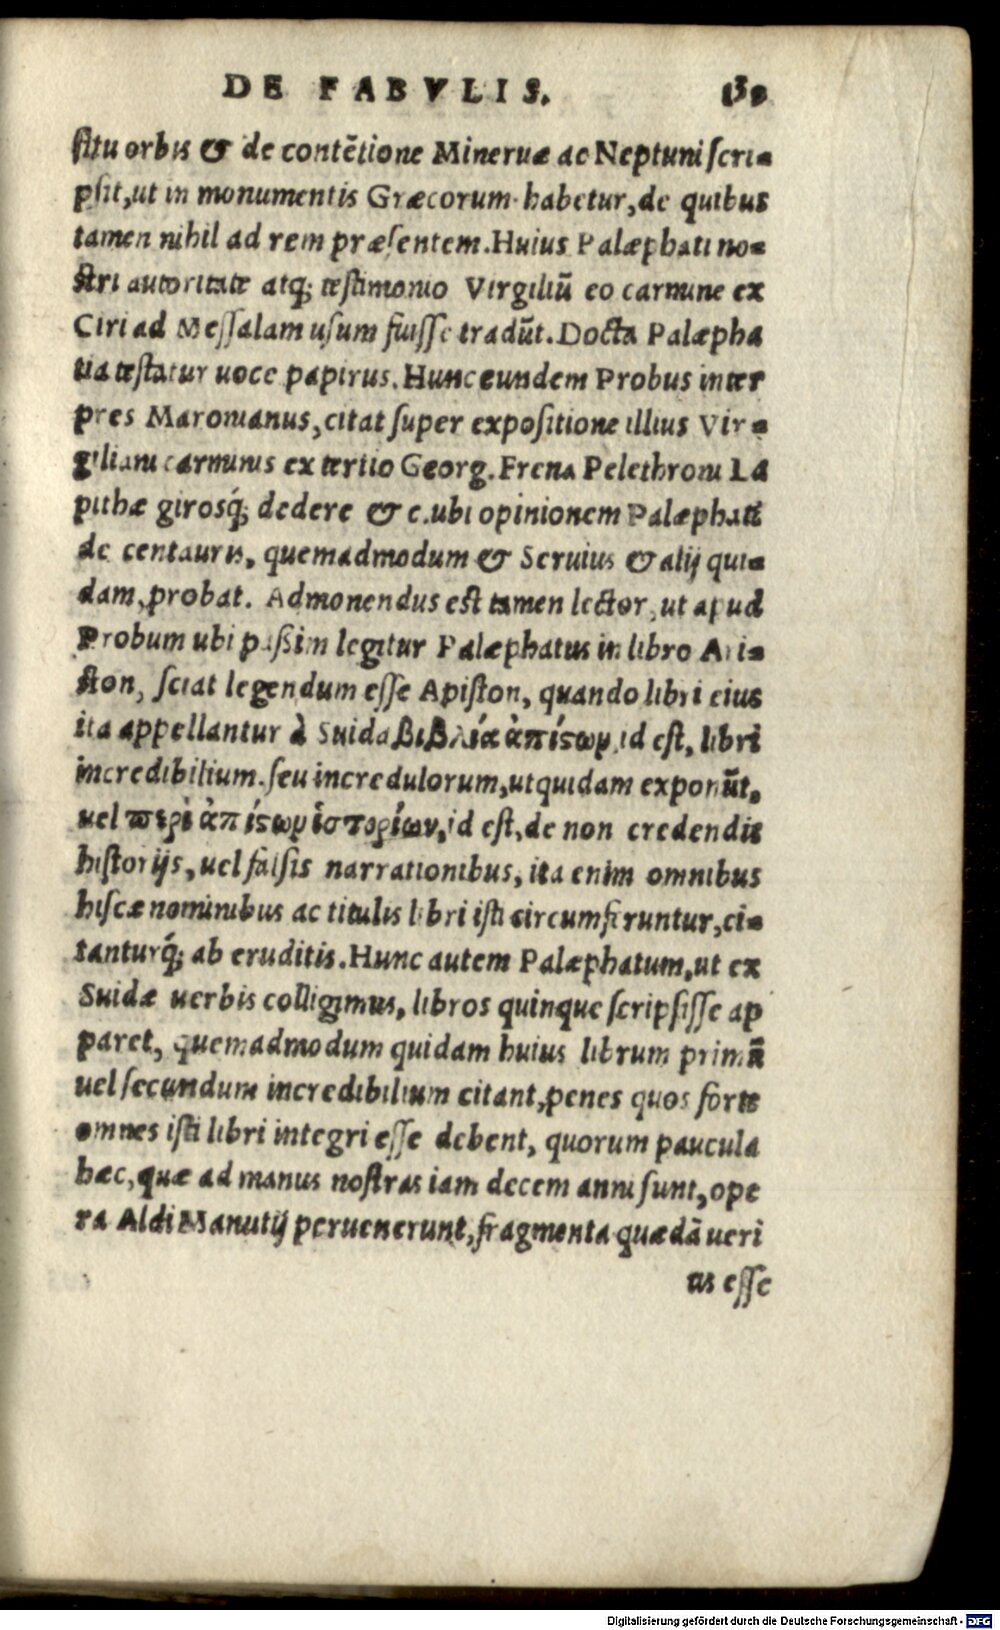 DE FABVLIS. 139
situ orbis & de contẽtione Mineruæ ac Neptuni scri=
psit, ut in monumentis Græcorum habetur, de quibus
tamen nihil ad rem præsentem. Huius Palæphati no=
stri autoritate atq; testimonio Virgiliũ eo carmine ex
Ciri ad Messalam usum fuisse tradũt. Docta Palæpha
tia testatur uoce papirus. Hunc eundem Probus inter
pres Maronianus, citat super expositione illius Vir=
giliani carminis ex tertio Georg. Frena Pelethronij La
pithæ girosq́; dedere & c. ubi opinionem Palæphati
de centauris, quemadmodum & Seruius & alij qui=
dam, probat. Admonendus est tamen lector, ut apud
Probum ubi paßim legitur Palæphatus in libro Ari=
ston, sciat legendum esse Apiston, quando libri eius
ita appellantur à Suida βιβλία ἀπίστων, id est, libri
incredibilium. seu incredulorum, ut quidam exponũt,
uel περὶ ἀπίστων ἱστοριῶν, id est, de non credendis
historijs, uel falsis narrationibus, ita enim omnibus
hisce nominibus ac titulis libri isti circumferuntur, ci=
tanturq́; ab eruditis. Hunc autem Palæphatum, ut ex
Suidæ uerbis colligimus, libros quinque scripsisse ap
paret, quemadmodum quidam huius librum primũ
uel secundum incredibilium citant, penes quos forte
omnes isti libri integri esse debent, quorum paucula
hæc, quæ ad manus nostras iam decem anni sunt, ope
ra Aldi Manutij peruenerunt, fragmenta quædã ueri
us esse
Digitalisierung gefördert durch die Deutsche Forschungsgemeinschaft - DFG